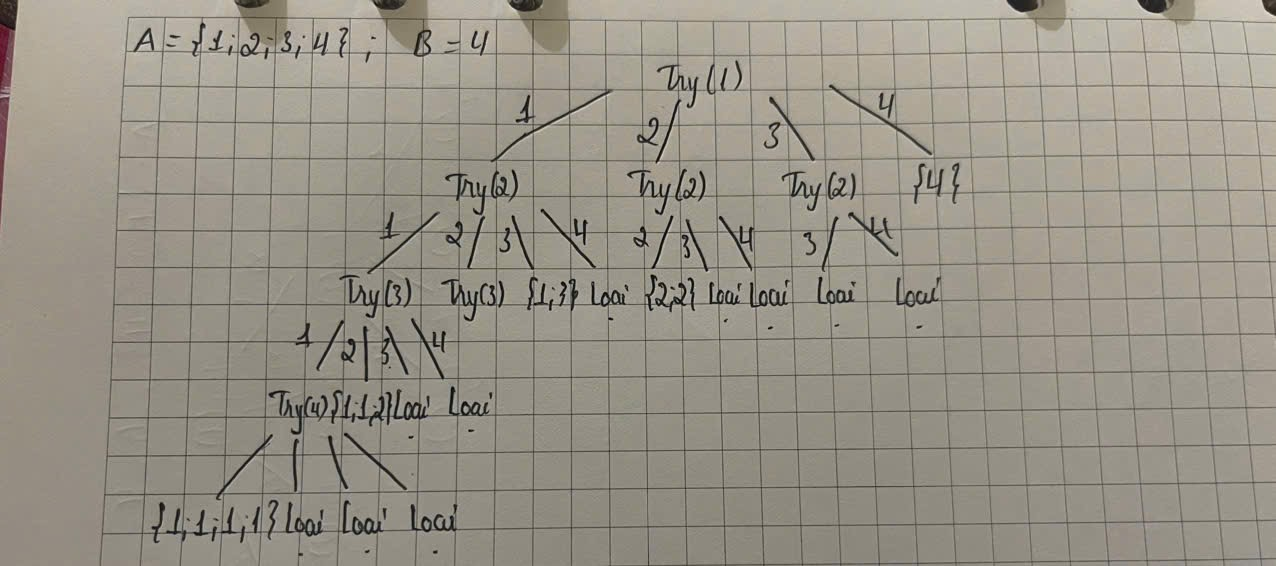 A = {1;2;3;4} ; B = 4
Try(1)
1 2 3 4
Try(2) Try(2) Try(2) {4}
1 2 3 4 2 3 4 3 4
Try(3) Try(3) {1;3} Loại {2;2} Loại Loại Loại Loại
1 2 3 4
Try(4) {1;1;2} Loại Loại
{1;1;1;1} Loại Loại Loại